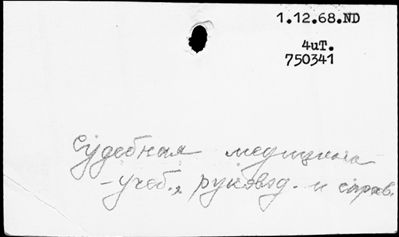 1.12.68.ND
4иТ.
750341
Судебная медицина
- учеб., руковод. и справ.